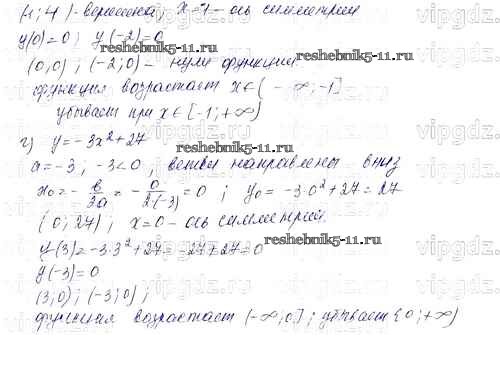 (1;4)-вершина; x=1- ось симметрии
y(0)=0; y(-2)=0
reshebnik5-11.ru
(0,0); (-2;0)- нули функции
функция возрастает x∈(-∞;-1]
убывает при x∈[-1;+∞)
г) y=-3x²+27
reshebnik5-11.ru
a=-3; -3<0, ветви направлены вниз
x₀=-в/2a=-0/2·(-3)=0; y₀=-3·0²+27=27
(0;27); x=0- ось симметрии.
reshebnik5-11.ru
y(3)=-3·3²+27=-27+27=0
y(-3)=0
(3;0); (-3;0);
reshebnik5-11.ru
функция возрастает (-∞;0]; убывает [0;+∞)
vipgdz.ru